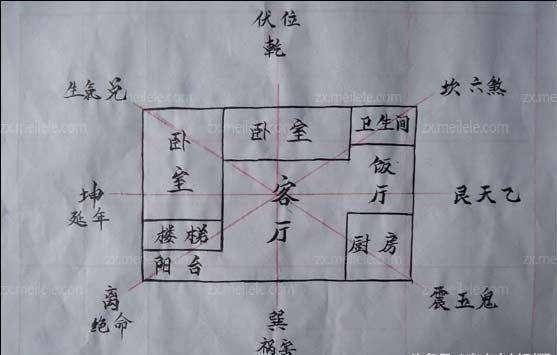 伏位
乾
生氣兑
坎六煞
卧室
卧室
卫生间
饭厅
坤
延年
客厅
艮天乙
楼梯
阳台
厨房
离
绝命
震五鬼
巽
祸害
zx.meilele.com
zx.meilele.com
zx.meilele.com
zx.meilele.com
zx.meilele.com
zx.meilele.com